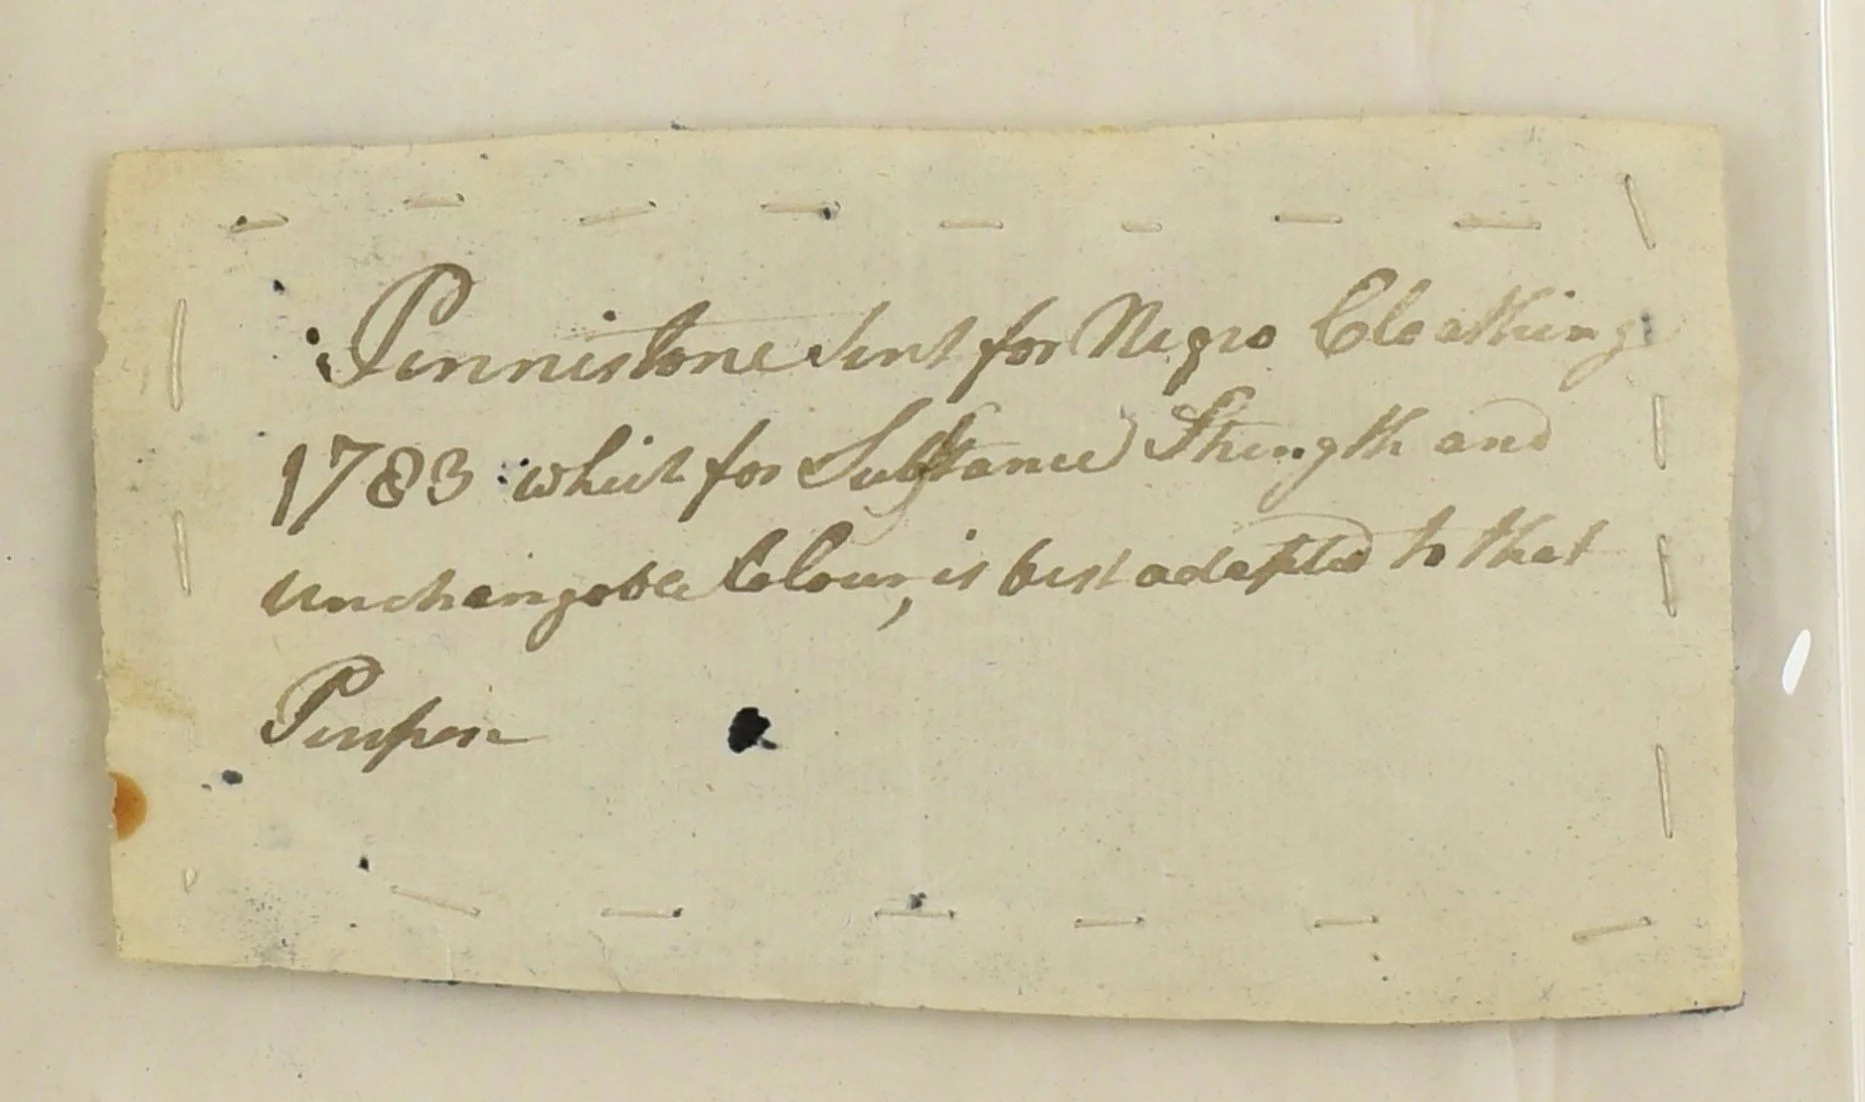 Pennistone Sent for Negro Cloathing
1783 which for Substance Strength and
unchangable Colour, is best adapted to that
Purpose